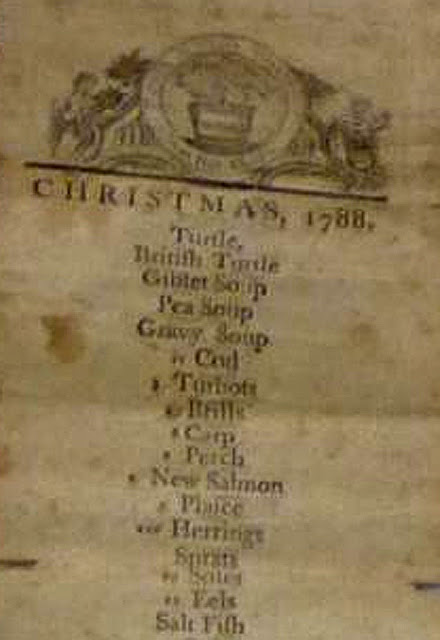 CHRISTMAS, 1788.
Turtle,
British Turtle
Giblet Soup
Pea Soup
Gravy Soup
Cod
Turbots
Brills
Carp
Perch
New Salmon
Plaice
Herrings
Sprats
Soles
Eels
Salt Fish